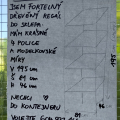 JSEM FORTELNÝ
DŘEVĚNÝ REGÁL
DO SKLEPA.
MÁM KRÁSNÉ
4 POLICE
A MODELOVSKÉ
MÍRY
V 195 cm
Š 81 cm
H 46 cm
NECHCI
DO KONTEJNERU
VOLEJTE
195
81
46